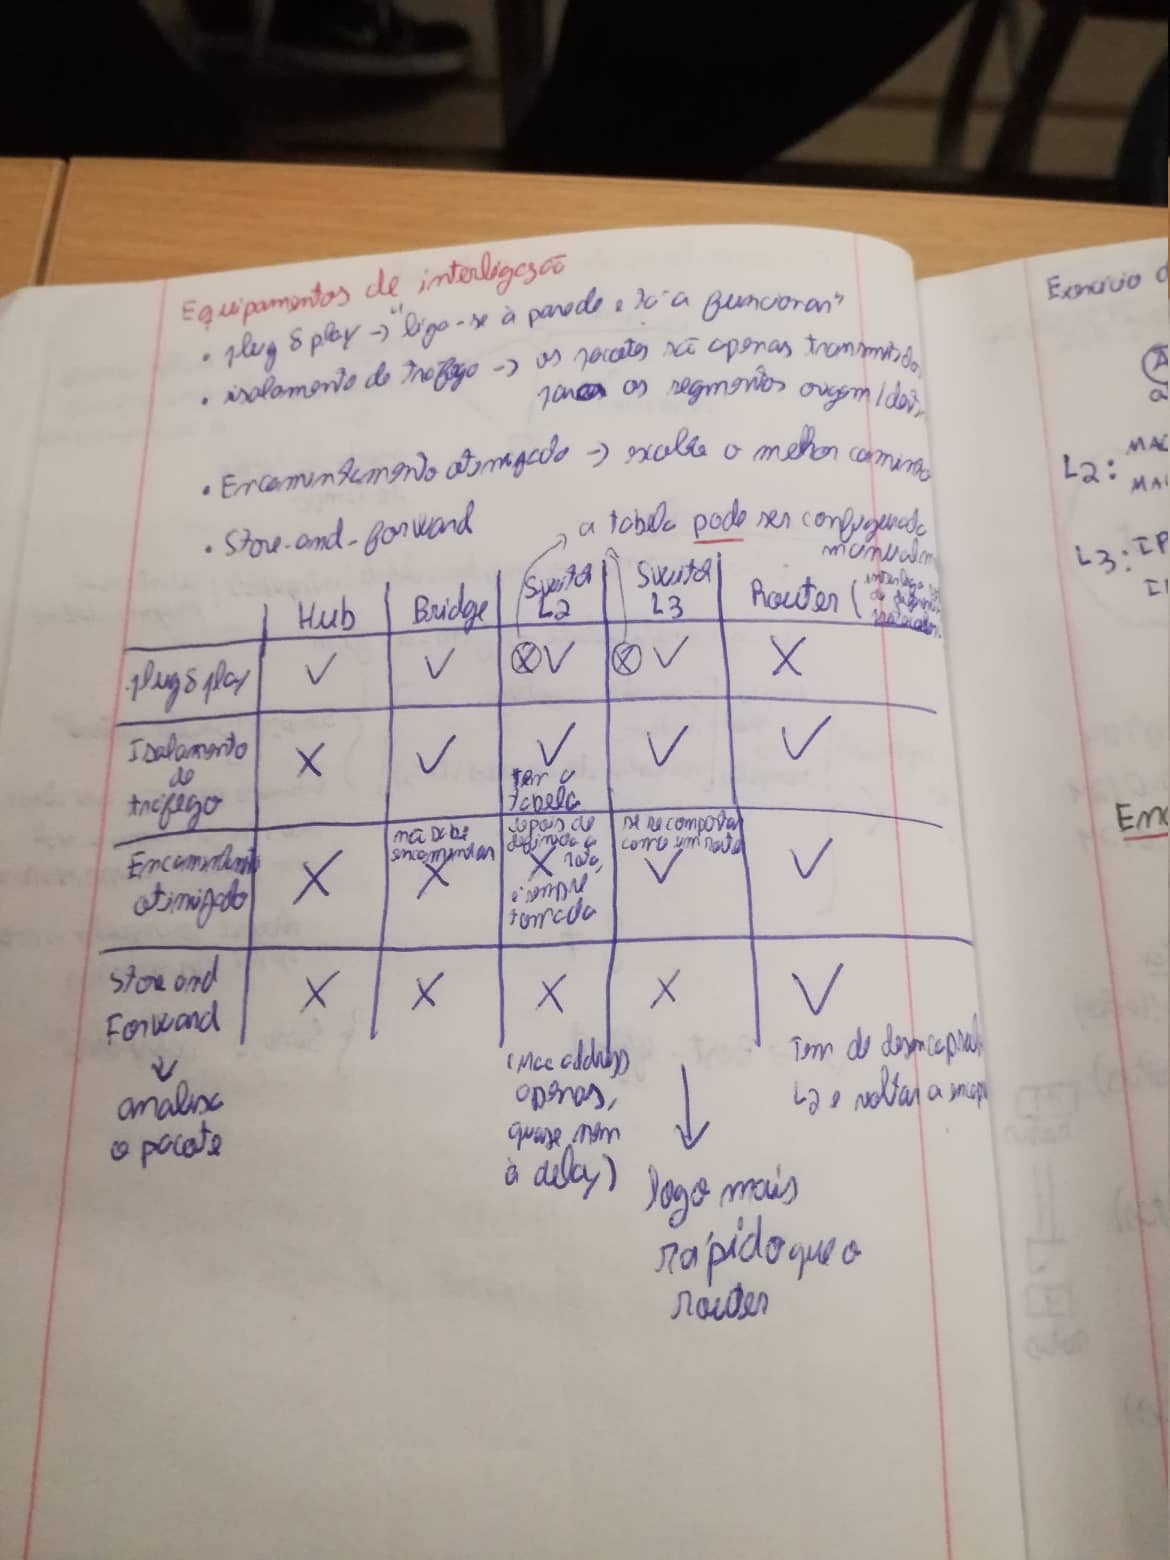 Equipamentos de interligação
• plug & play -> "liga-se à parede e tá a funcionar"
• isolamento de tráfego -> os pacotes são apenas transmitidos
para os segmentos origem/
• Encaminhamento otimizado -> escolhe o melhor caminho
• Store-and-forward
a tabela pode ser configurada
manualm
Hub Bridge Switch L2 Switch L3 Router (
plug & play ✓ ✓ ⊗✓ ⊗✓ X
Isolamento de tráfego X ✓ ✓ ✓ ✓
ter a
tabela
Encaminhamento otimizado X X X ✓ ✓
não sabe
encaminhar
depois de
definida a
rota,
é sempre
tomada
se se comportar
como um router
Store and Forward X X X X ✓
↓
analisa
o pacote
(Mac address
apenas,
quase nem
à delay)
↓
logo mais
rápido que o
router
Tem de desencapsul
L2 e voltar a encap
Exercício
A
a
L2: MAC
MAC
L3: IP